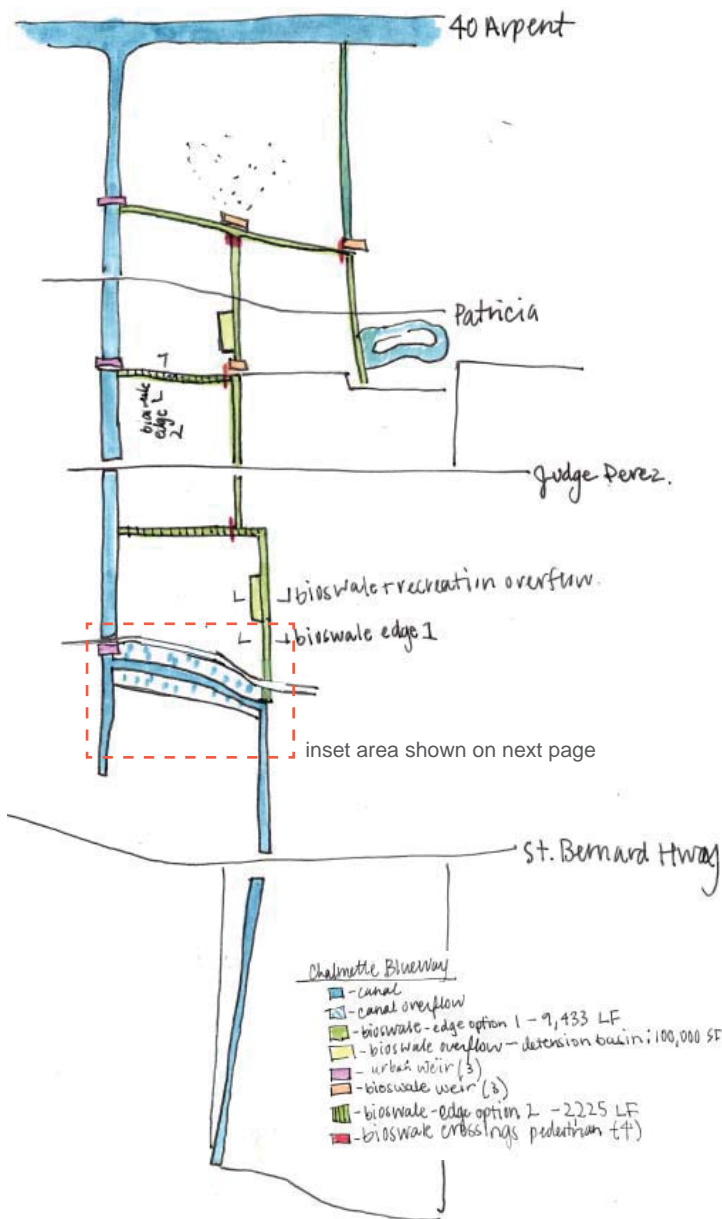 40 Arpent
Patricia
7
bioswale
edge
2
Judge Perez.
bioswale + recreation overflow.
bioswale edge 1
inset area shown on next page
St. Bernard Hway
Chalmette Blueway
- canal
- canal overflow
- bioswale - edge option 1 - 9,433 LF
- bioswale overflow - detension basin: 100,000 SF
- urban weir (3)
- bioswale weir (3)
- bioswale - edge option 2 - 2225 LF
- bioswale crossings pedestrian (4)